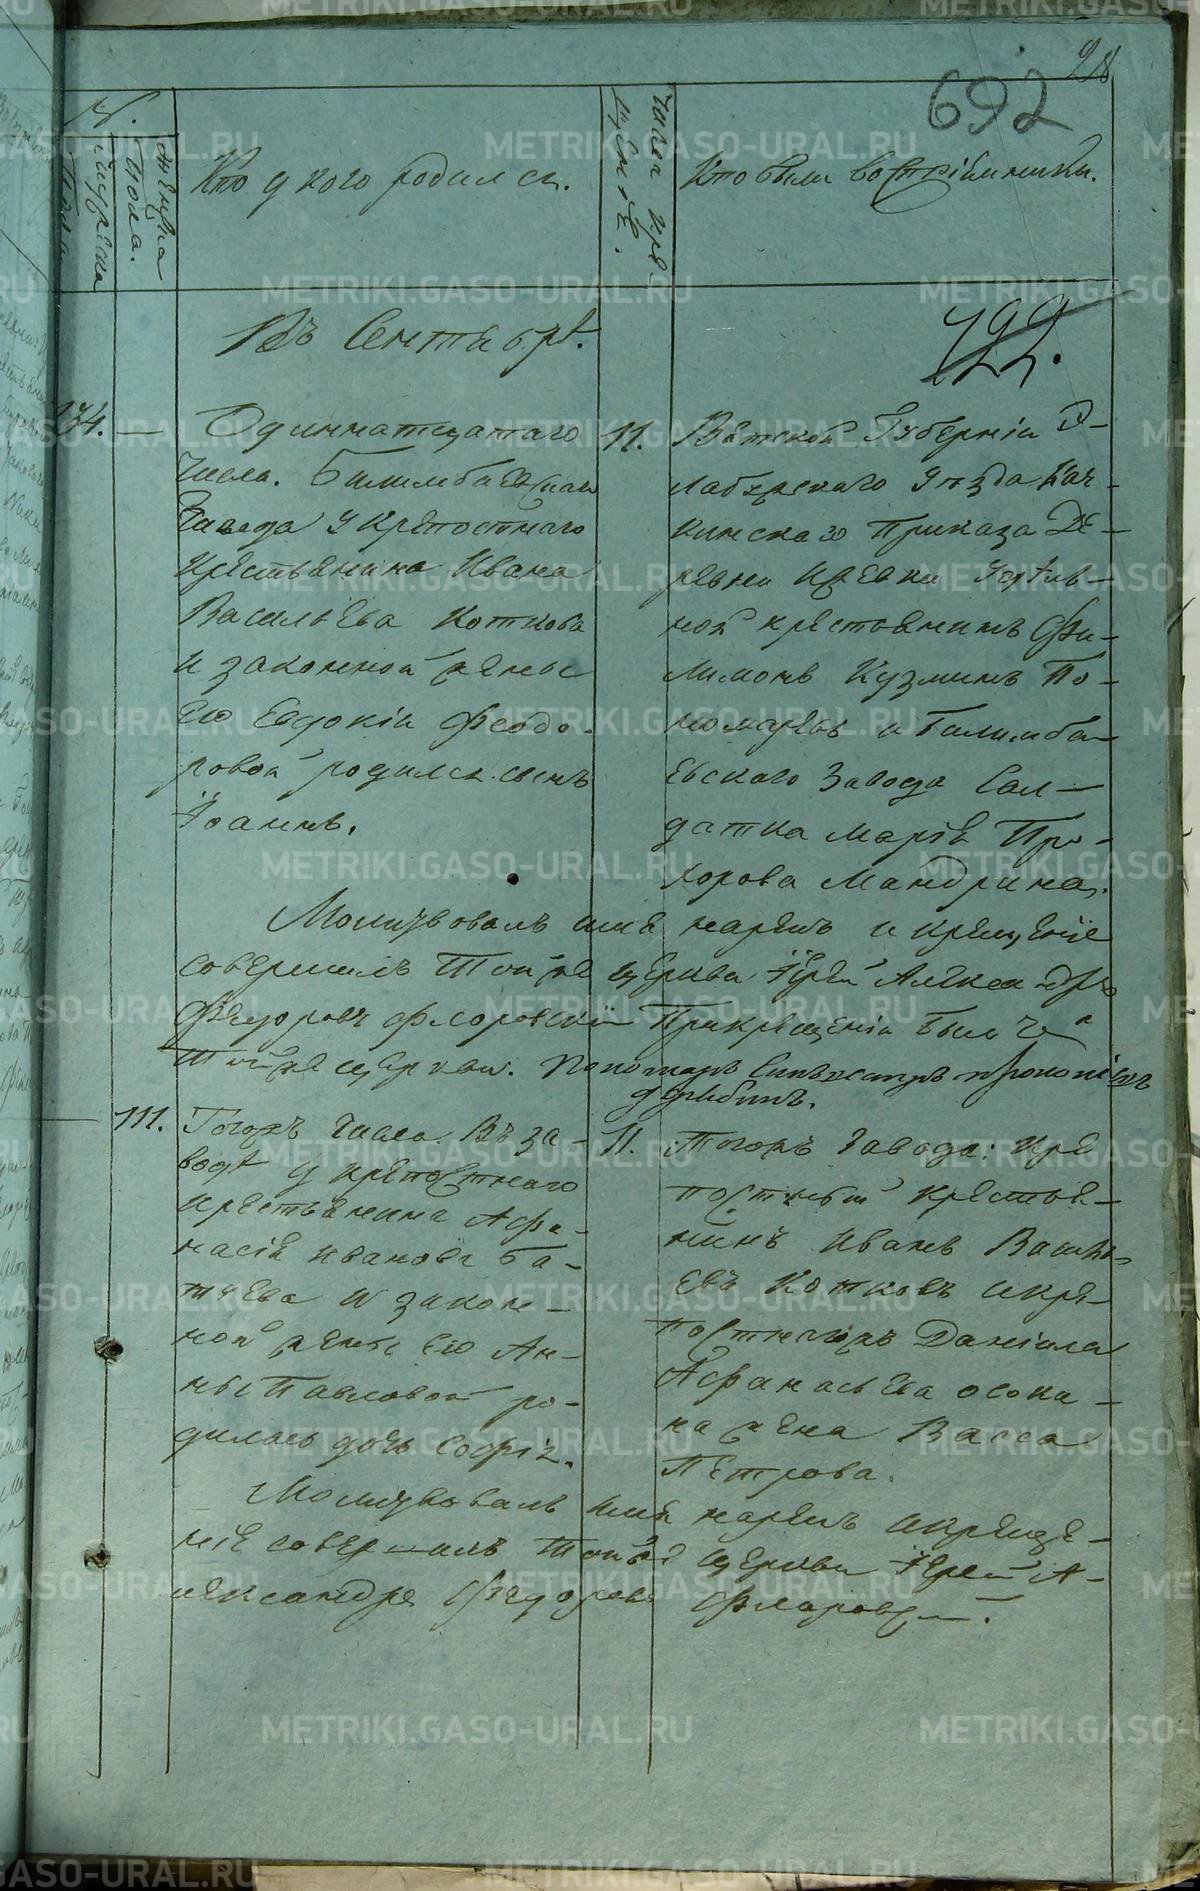 28
692
№ мужеска пола
женска пола.
Кто у кого родился.
Числа крещенiѣ.
Кто были воспрiѣмники.
Въ Сентябрѣ.
722.
134.
Одинматцатаго
числа. Билимбаевскаго
Завода у крепостнаго
крестьянина Ивана
Васильева Коткова
и законной жены
Его Евдокiи Феодо-
ровой родился сынъ
Iоаннъ.
11.
Вятской Губернiи Э-
лабужскаго уезда Кач-
кинскаго Приказа Де-
ревни
ной крестьянинъ Фи-
лимонъ Кузминъ По-
номаревъ и Билимба-
евскаго Завода Сол-
датка Марiя Про-
хорова Мандрина.
Молитвовалъ имя нарекъ и крещенiе
совершилъ Той же церкви Iерей Александръ
Федоровъ Флоровскiй При крещенiи был
Той же церкви. Пономарь Сильвестръ Прокопiевъ
111.
Тогожъ числа. Въ За-
водѣ у крепостнаго
крестьянина Афа-
насiя Иванова Ба-
туева и закон-
ной жены Его Ан-
ны Павловой ро-
дилась дочь Софiя.
11.
Тогожъ Завода: Кре-
постный крестья-
нинъ Иванъ Василь-
евъ Котковъ и кре-
постнагожъ Данiила
Афанасьева Осоки-
на жена Васса
Петрова.
Молитвовалъ имя нарекъ и креще-
нiе совершилъ Той же церкви Iерей А-
лександръ Федоровъ Флоровскiй.
METRIKI.GASO-URAL.RU